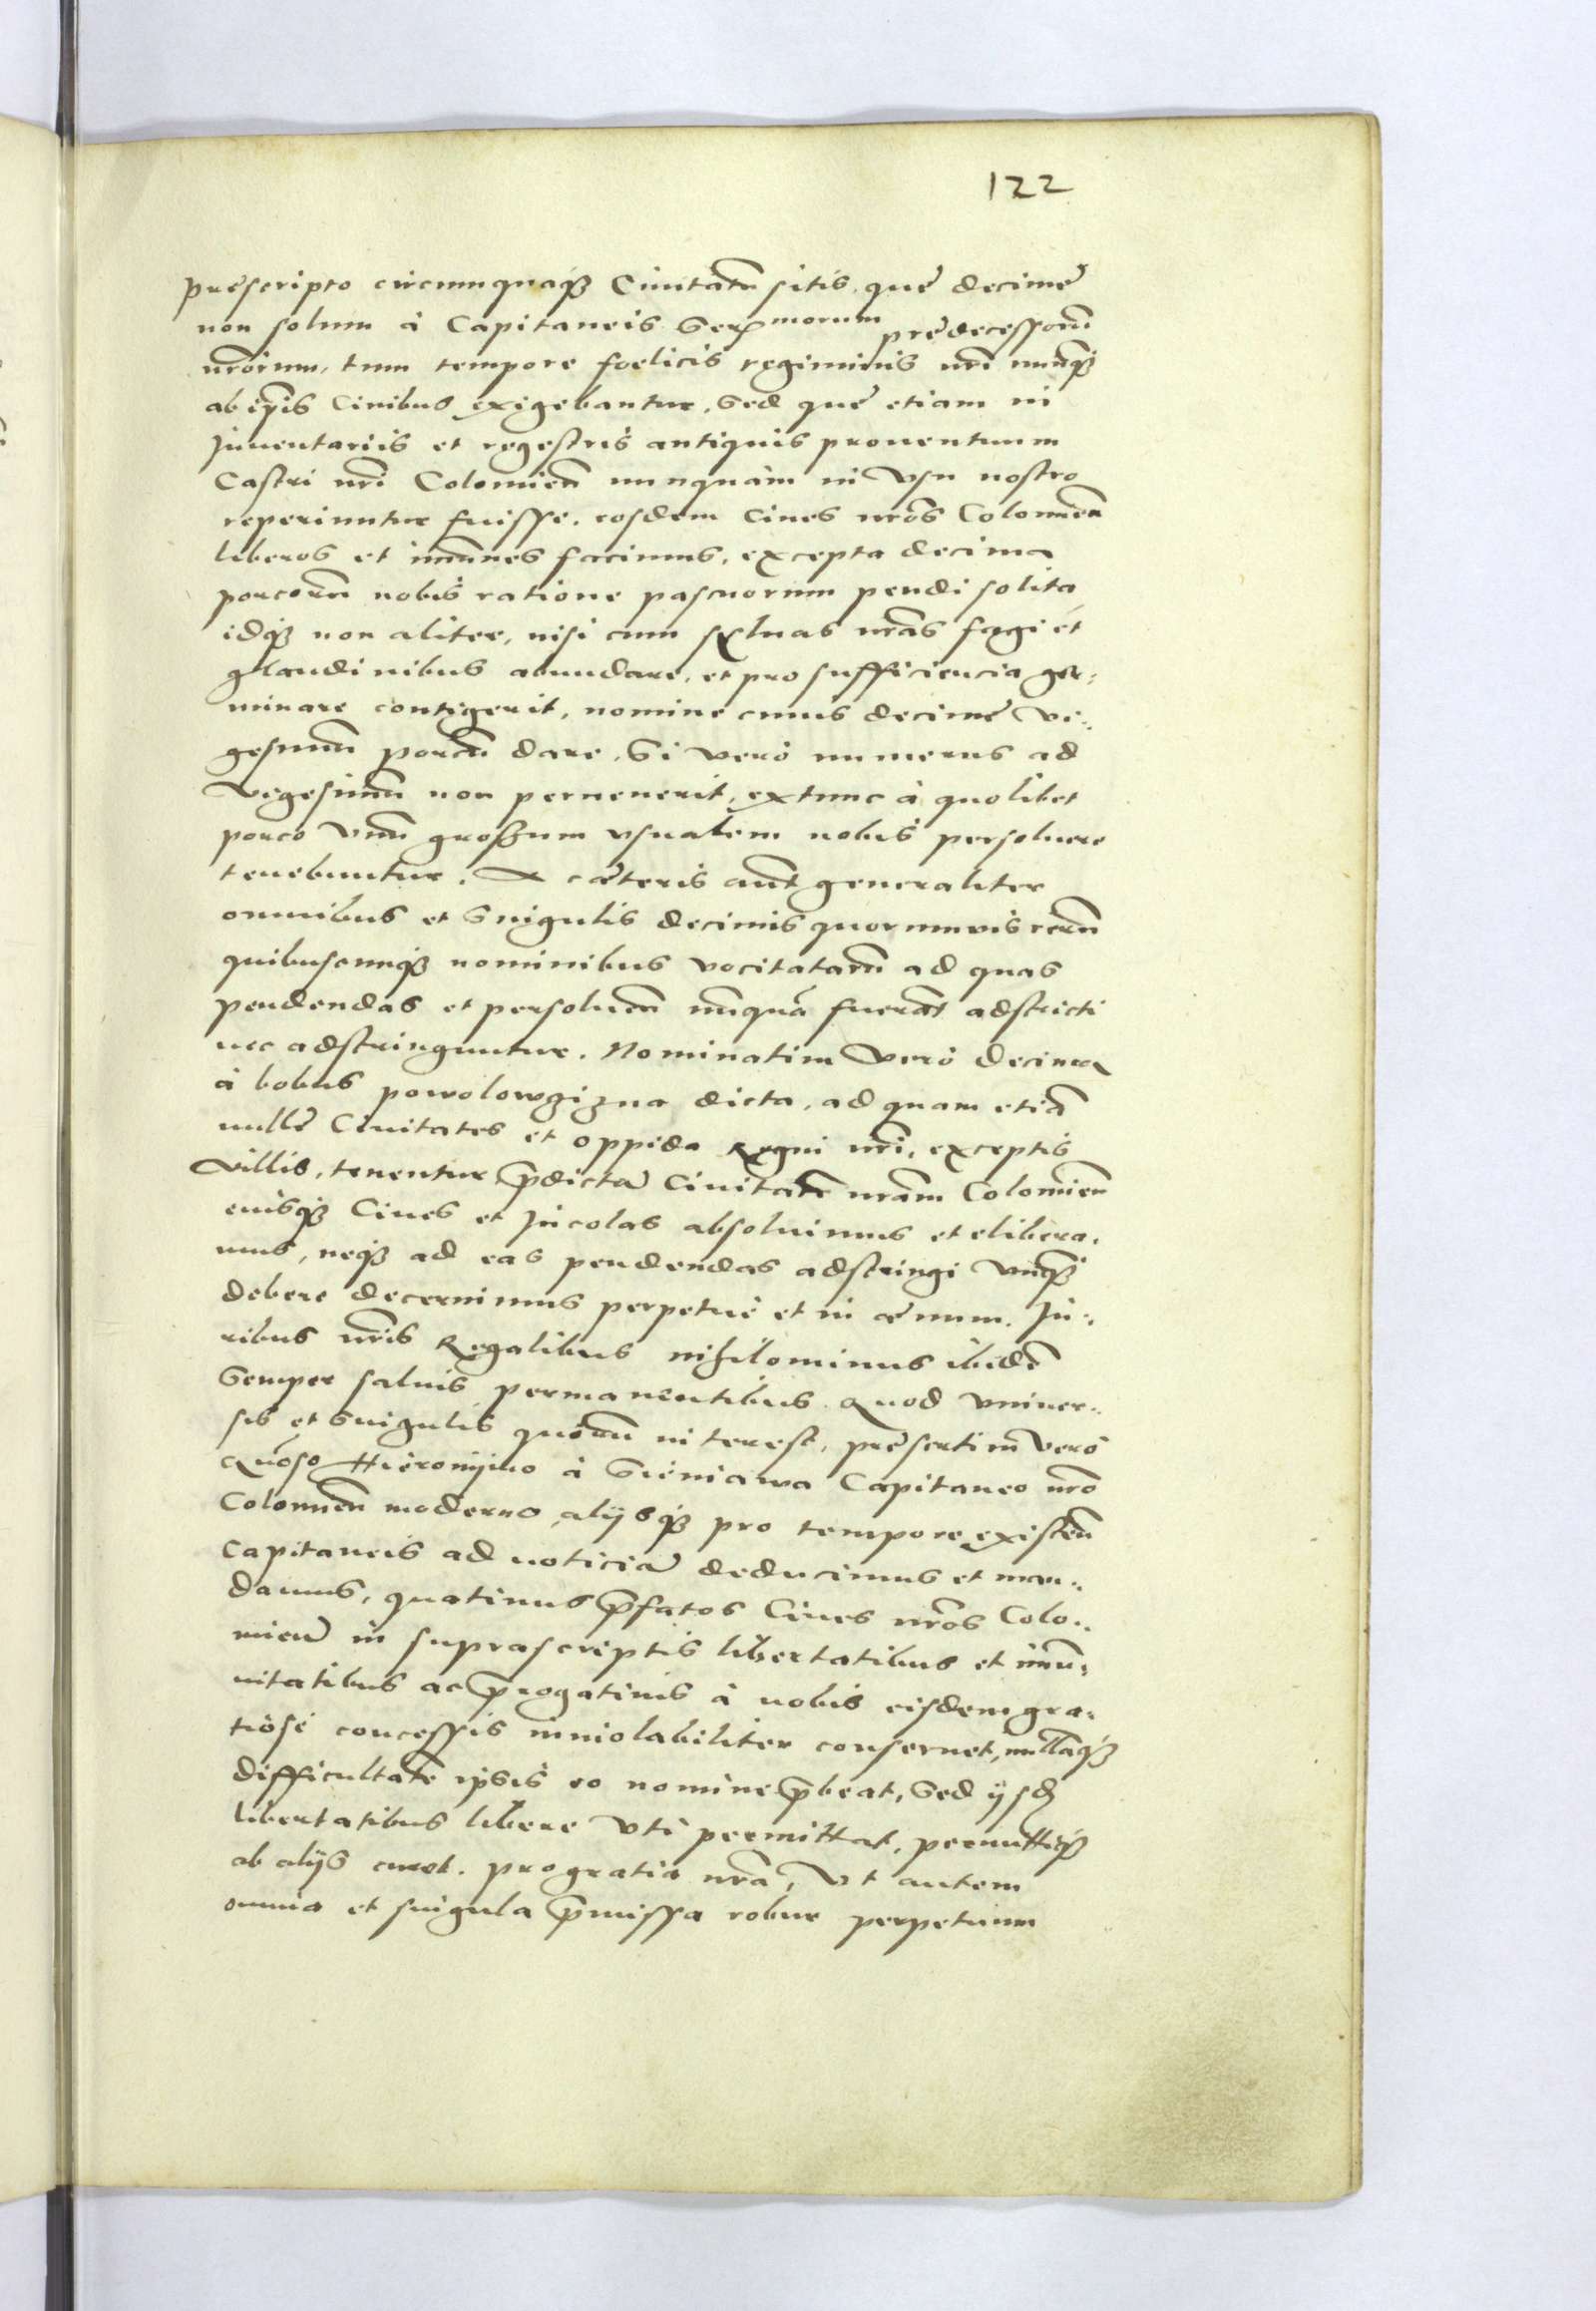 122
præscripto circumquaq3 Ciuitatẽ sitis, quę decimę
non solum à Capitaneis Ser morum prędecessorũ
nrõrum, tum tempore foelicis regiminis nrĩ nunq3
ab ip̃is Ciuibus exigebantur, Sed quę etiam in
Jnuentariis et regestris antiquis prouentuum
Castri nrĩ Colomieñ nunquàm in vsu nostro
reperiuntur fuisse, eosdem Ciues nrõs Colomieñ
liberos et im̃unes facimus, excepta decima
porcorũ nobis ratione pascuorum pendi solita
idq3 non aliter, nisi cum syluas nrãs fagi et
glandinibus abundare, et pro sufficiencia ger-
minare contigerit, nomine cuius decimę vi-
gesimũ porcũ dare, Si verò numerus ad
vigesimũ non peruenerit, extunc à quolibet
porco vnũ grossum vsualem nobis persoluere
tenebuntur. A cæteris aũt generaliter
omnibus et singulis decimis quorumuis rerũ
quibuscunq3 nominibus vocitatarũ ad quas
pendendas et persolueñ nũquã fuerãt adstricti
nec adstringuntur. Nominatim verò decima
à bobus powolowgizna dicta, ad quam etiã
nullę Ciuitates et oppida Regni nrĩ, exceptis
villis, tenentur p̃dictã Ciuitatẽ nrãm Colomieñ
eiusq3 Ciues et Jncolas absoluimus et elibera-
mus, neq3 ad eas pendendas adstringi vnq3
debere decernimus perpetuè et in æuum. Ju-
ribus nrĩs Regalibus nihilominus ibidẽ
Semper saluis permanentibus. Quod vniuer-
sis et singulis quorũ interest, pręsertim verò
Gñoso Hieronymo à Sieniawa Capitaneo nrõ
Colomieñ moderno, alijsq3 pro tempore existeñ
Capitaneis ad noticiã deducimus et man-
damus, quatinus p̃fatos Ciues nrõs Colo-
mieñ in suprascriptis libertatibus et im̃u-
nitatibus ac p̃rogatiuis à nobis eisdem gra-
tiosè concessis inuiolabiliter conseruet, nullãq3
difficultatẽ ipsis eo nomine p̃beat, Sed ijsd
libertatibus liberè vti permittat, permittiq3
ab alijs curet. pro gratia nrã, Vt autem
omnia et singula p̃missa robur perpetuum